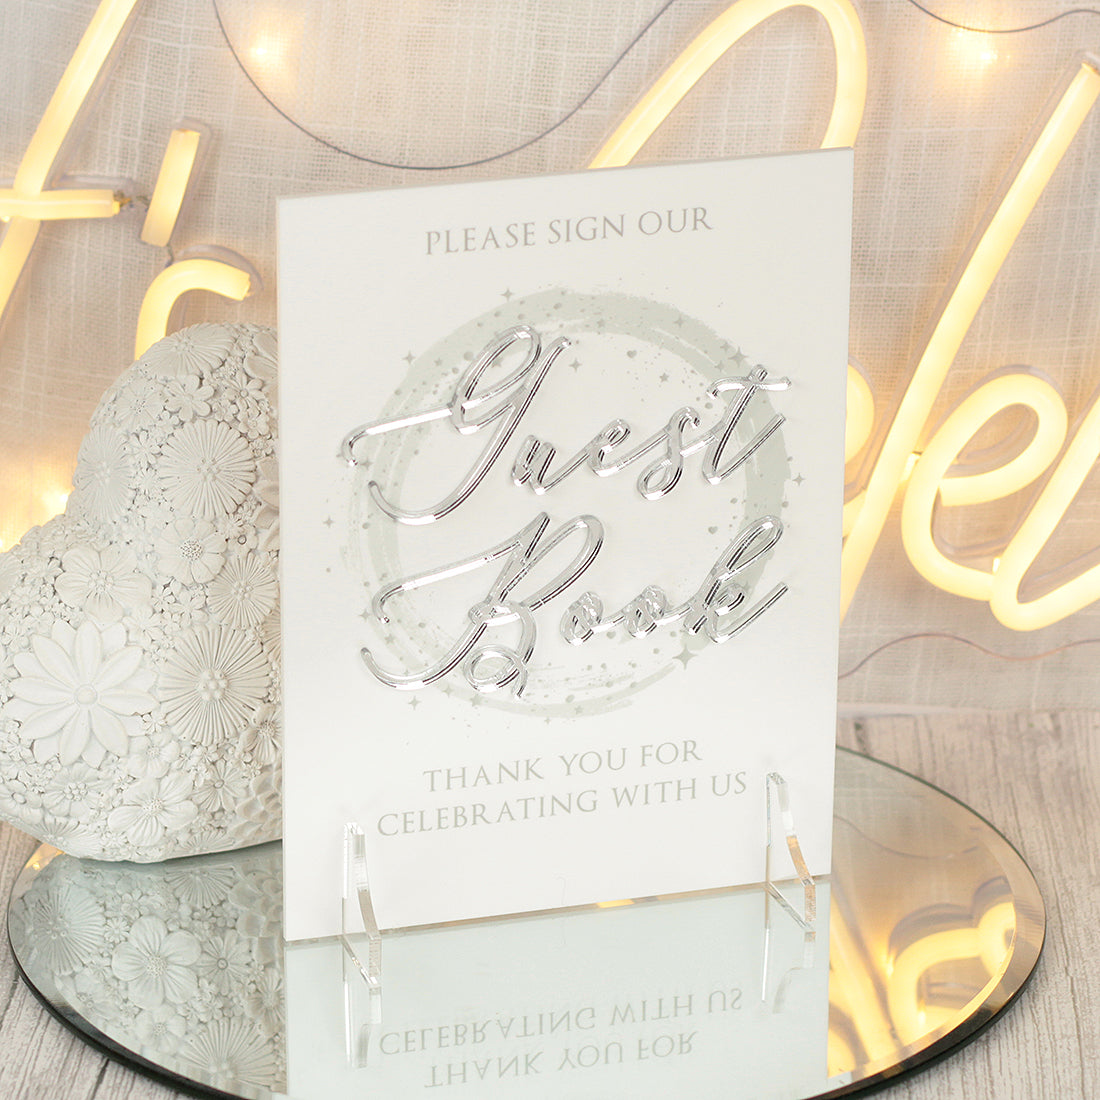 PLEASE SIGN OUR
Guest
Book
THANK YOU FOR
CELEBRATING WITH US